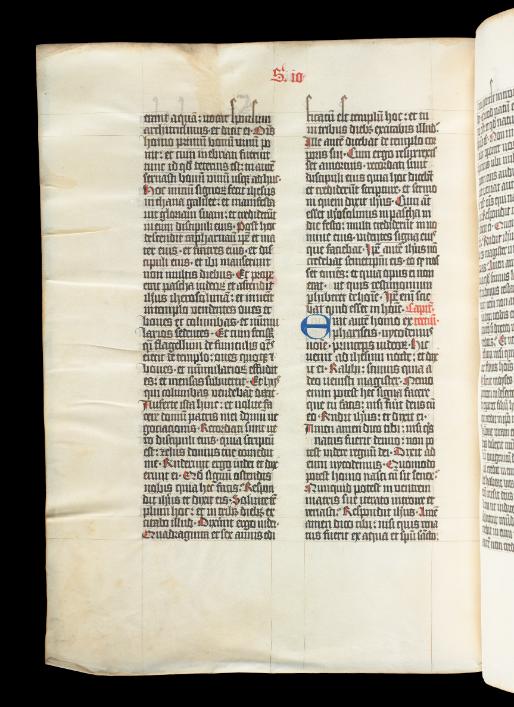 S. io
erant aquā: vocat sponsum
architriclinus et dicit ei. Oīs
homo primū bonū vinū po
nit: et cum inebriati fuerint
tunc id qd deterius est: tu autē
servasti bonū vinū usqȝ adhuc.
Hoc initiū signoꝝ fecit ihesus
in chana galilee: et manifesta
vit gloriam suam: et crediderūt
in eum discipuli eius. Post hoc
descendit capharnaū ipē et ma
ter eius et fratres eius et dis
cipuli eius et ibi manserunt
non multis diebus. Et prope
erat pascha iudeoꝝ et ascendit
ihūs iherosolymā: et invenit
in templo vendentes oves et
boves et columbas et numu
larios sedentes. Et cum fecissȝ
qͣi flagellum de funiculis oēs
eiecit de templo: oves quoqȝ et
boves: et numulariorū effudit
es: et mensas subvertit. Et hijs
qui columbas vendebāt dixit.
Auferte ista hinc: et nolite fa
cere domū patris mei domū ne
gociationis. Recordati sunt ve
ro discipuli eius quia scriptū
est: zelus domus tue comedit
me. Rnderunt ergo iudei et dixe
erunt ei. Qd signū ostendis
nobis quia hec facis. Respon
dit ihūs et dixit eis. Solvite tē
plum hoc: et in tribȝ diebȝ ex
citabo illud. Dixerūt ergo iudei
Quadraginta et sex annis edi
ficatū est templū hoc: et tu
in tribus diebȝ excitabis illud.
Ille autē dicebat de templo cor
poris sui. Cum ergo resurrexis
set a mortuis: recordati sunt
discipuli eius quia hoc dicebat
et crediderūt scripture: et sermo
ni quem dixit ihūs. Cum aūt
esset iherosolimis in pascha in
die festo: multi crediderūt in no
mine eius: videntes signa eiꝰ
que faciebat. Ipē autē ihūs nō
credebat semetipm eis: eo qͦ nos
set omēs: et quia opus ei non
erat: ut quis testimonium
phiberet de hoīe. Ipē em̄ scie
bat quid esset in hoīe. Capit.
Erat autē homo ex tercium
phariseis: nychodemus
noīe: princeps iudeoꝝ. Hic
venit ad ihesum nocte: et dix
it ei. Rabbi: scimus quia a
deo venisti magister. Nemo
enim potest hec signa facere
que tu facis: nisi fuerit deus cū
eo. Rndit ihūs: et dixit ei.
Amen amen dico tibi: nisi qͥs
natus fuerit denuo: non po
test videre regnū dei. Dixit ad
eum nycodemus. Quomodo
potest homo nasci cū sit senex.
Nunquid potest in ventrem
matris sue iterato introire et
renasci. Respondit ihūs. Amē
amen dico tibi: nisi quis rena
tus fuerit ex aqua et spū sācto: